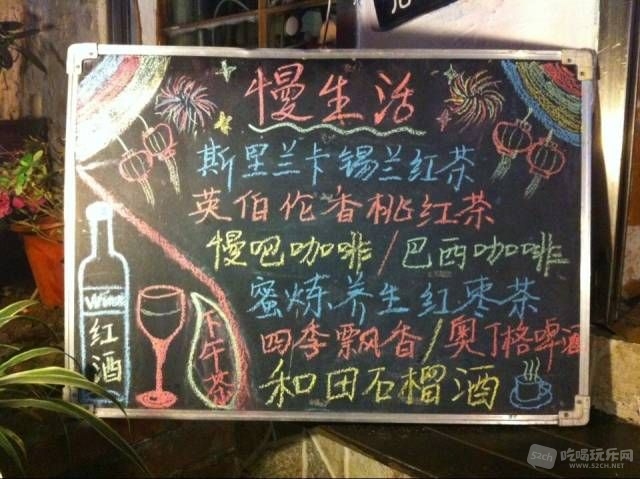 慢生活
斯里兰卡锡兰红茶
英伯伦香桃红茶
慢吧咖啡/巴西咖啡
蜜炼养生红枣茶
四季飘香/奥丁格啤酒
和田石榴酒
Wine
红酒
下午茶
吃喝玩乐网
WWW.52CH.NET
52ch